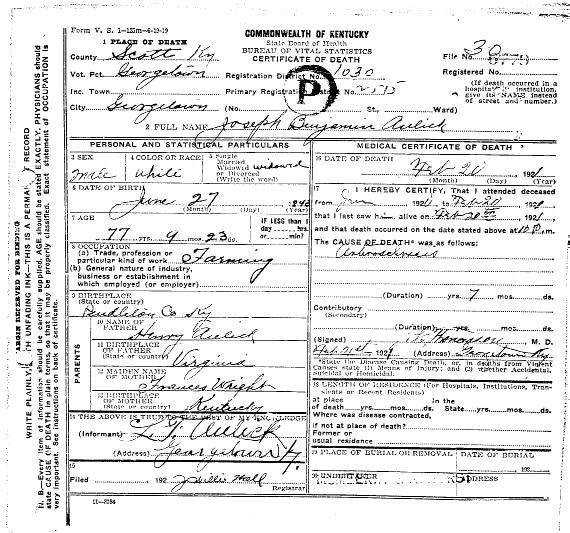 Form V. S. 1-125m-6-19-19
COMMONWEALTH OF KENTUCKY
State Board of Health
BUREAU OF VITAL STATISTICS
CERTIFICATE OF DEATH
1 PLACE OF DEATH
County Scott Ky
File No.
Vot. Pct. Georgetown
Registration District No. 1030
Registered No.
Inc. Town
Primary Registration District No. 2575
(If death occurred in a hospital or institution, give its NAME instead of street and number.)
City Georgetown (No. St., Ward)
P
2 FULL NAME Joseph Benjamin Aulick
PERSONAL AND STATISTICAL PARTICULARS
3 SEX
male
4 COLOR OR RACE
White
5 Single
Married
Widowed
or Divorced
(Write the word)
widowed
6 DATE OF BIRTH
June 27
(Month) (Day) (Year)
7 AGE
77 yrs. 9 mos. 23 ds.
IF LESS than
day hrs.
or min?
8 OCCUPATION
(a) Trade, profession or
particular kind of work Farming
(b) General nature of industry,
business or establishment in
which employed (or employer)
9 BIRTHPLACE
(State or country)
Pendleton Co Ky
PARENTS
10 NAME OF
FATHER
Henry Aulick
11 BIRTHPLACE
OF FATHER
(State or country)
Virginia
12 MAIDEN NAME
OF MOTHER
Frances Wright
13 BIRTHPLACE
OF MOTHER
(State or country)
Kentucky
14 THE ABOVE IS TRUE TO THE BEST OF MY KNOWLEDGE
(Informant) Aulick
(Address) Georgetown Ky.
15
Filed 192 Hall
Registrar
11-3184
MEDICAL CERTIFICATE OF DEATH
16 DATE OF DEATH
Feb 20 1921
(Month) (Day) (Year)
17
I HEREBY CERTIFY, That I attended deceased
from 192 to Feb 20 192
that I last saw h alive on Feb 20th, 1921
and that death occurred on the date stated above at m.
The CAUSE OF DEATH* was as follows:
(Duration) yrs. 7 mos. ds.
Contributory
(Secondary)
(Duration) yrs. mos. ds.
(Signed) M. D.
Feb 21st 192 (Address) Georgetown Ky
*State the Disease Causing Death, or, in deaths from Violent
Causes state (1) Means of Injury; and (2) whether Accidental,
Suicidal or Homicidal.
18 LENGTH OF RESIDENCE (For Hospitals, Institutions, Transients or Recent Residents)
At place In the
of death yrs. mos. ds. State yrs. mos. ds.
Where was disease contracted,
if not at place of death?
Former or
usual residence
19 PLACE OF BURIAL OR REMOVAL
DATE OF BURIAL
192
20 UNDERTAKER
MARGIN RESERVED FOR BINDING
WRITE PLAINLY, WITH UNFADING INK—THIS IS A PERMANENT RECORD
N. B.—Every item of information should be carefully supplied. AGE should be stated EXACTLY. PHYSICIANS should
state CAUSE OF DEATH in plain forms, so that it may be properly classified. Exact statement of OCCUPATION is
very important. See instructions on back of certificate.